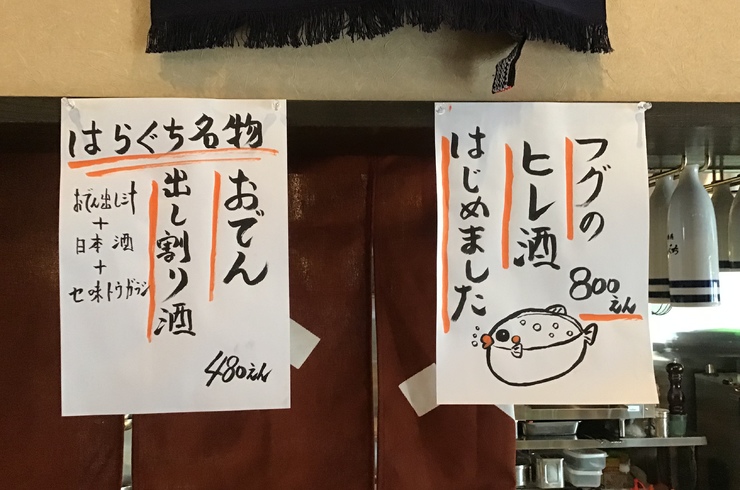 はらぐち名物
おでん
出し割り酒
おでん出し汁
+
日本酒
+
七味トウガラシ
480えん
フグの
ヒレ酒
はじめました
800えん